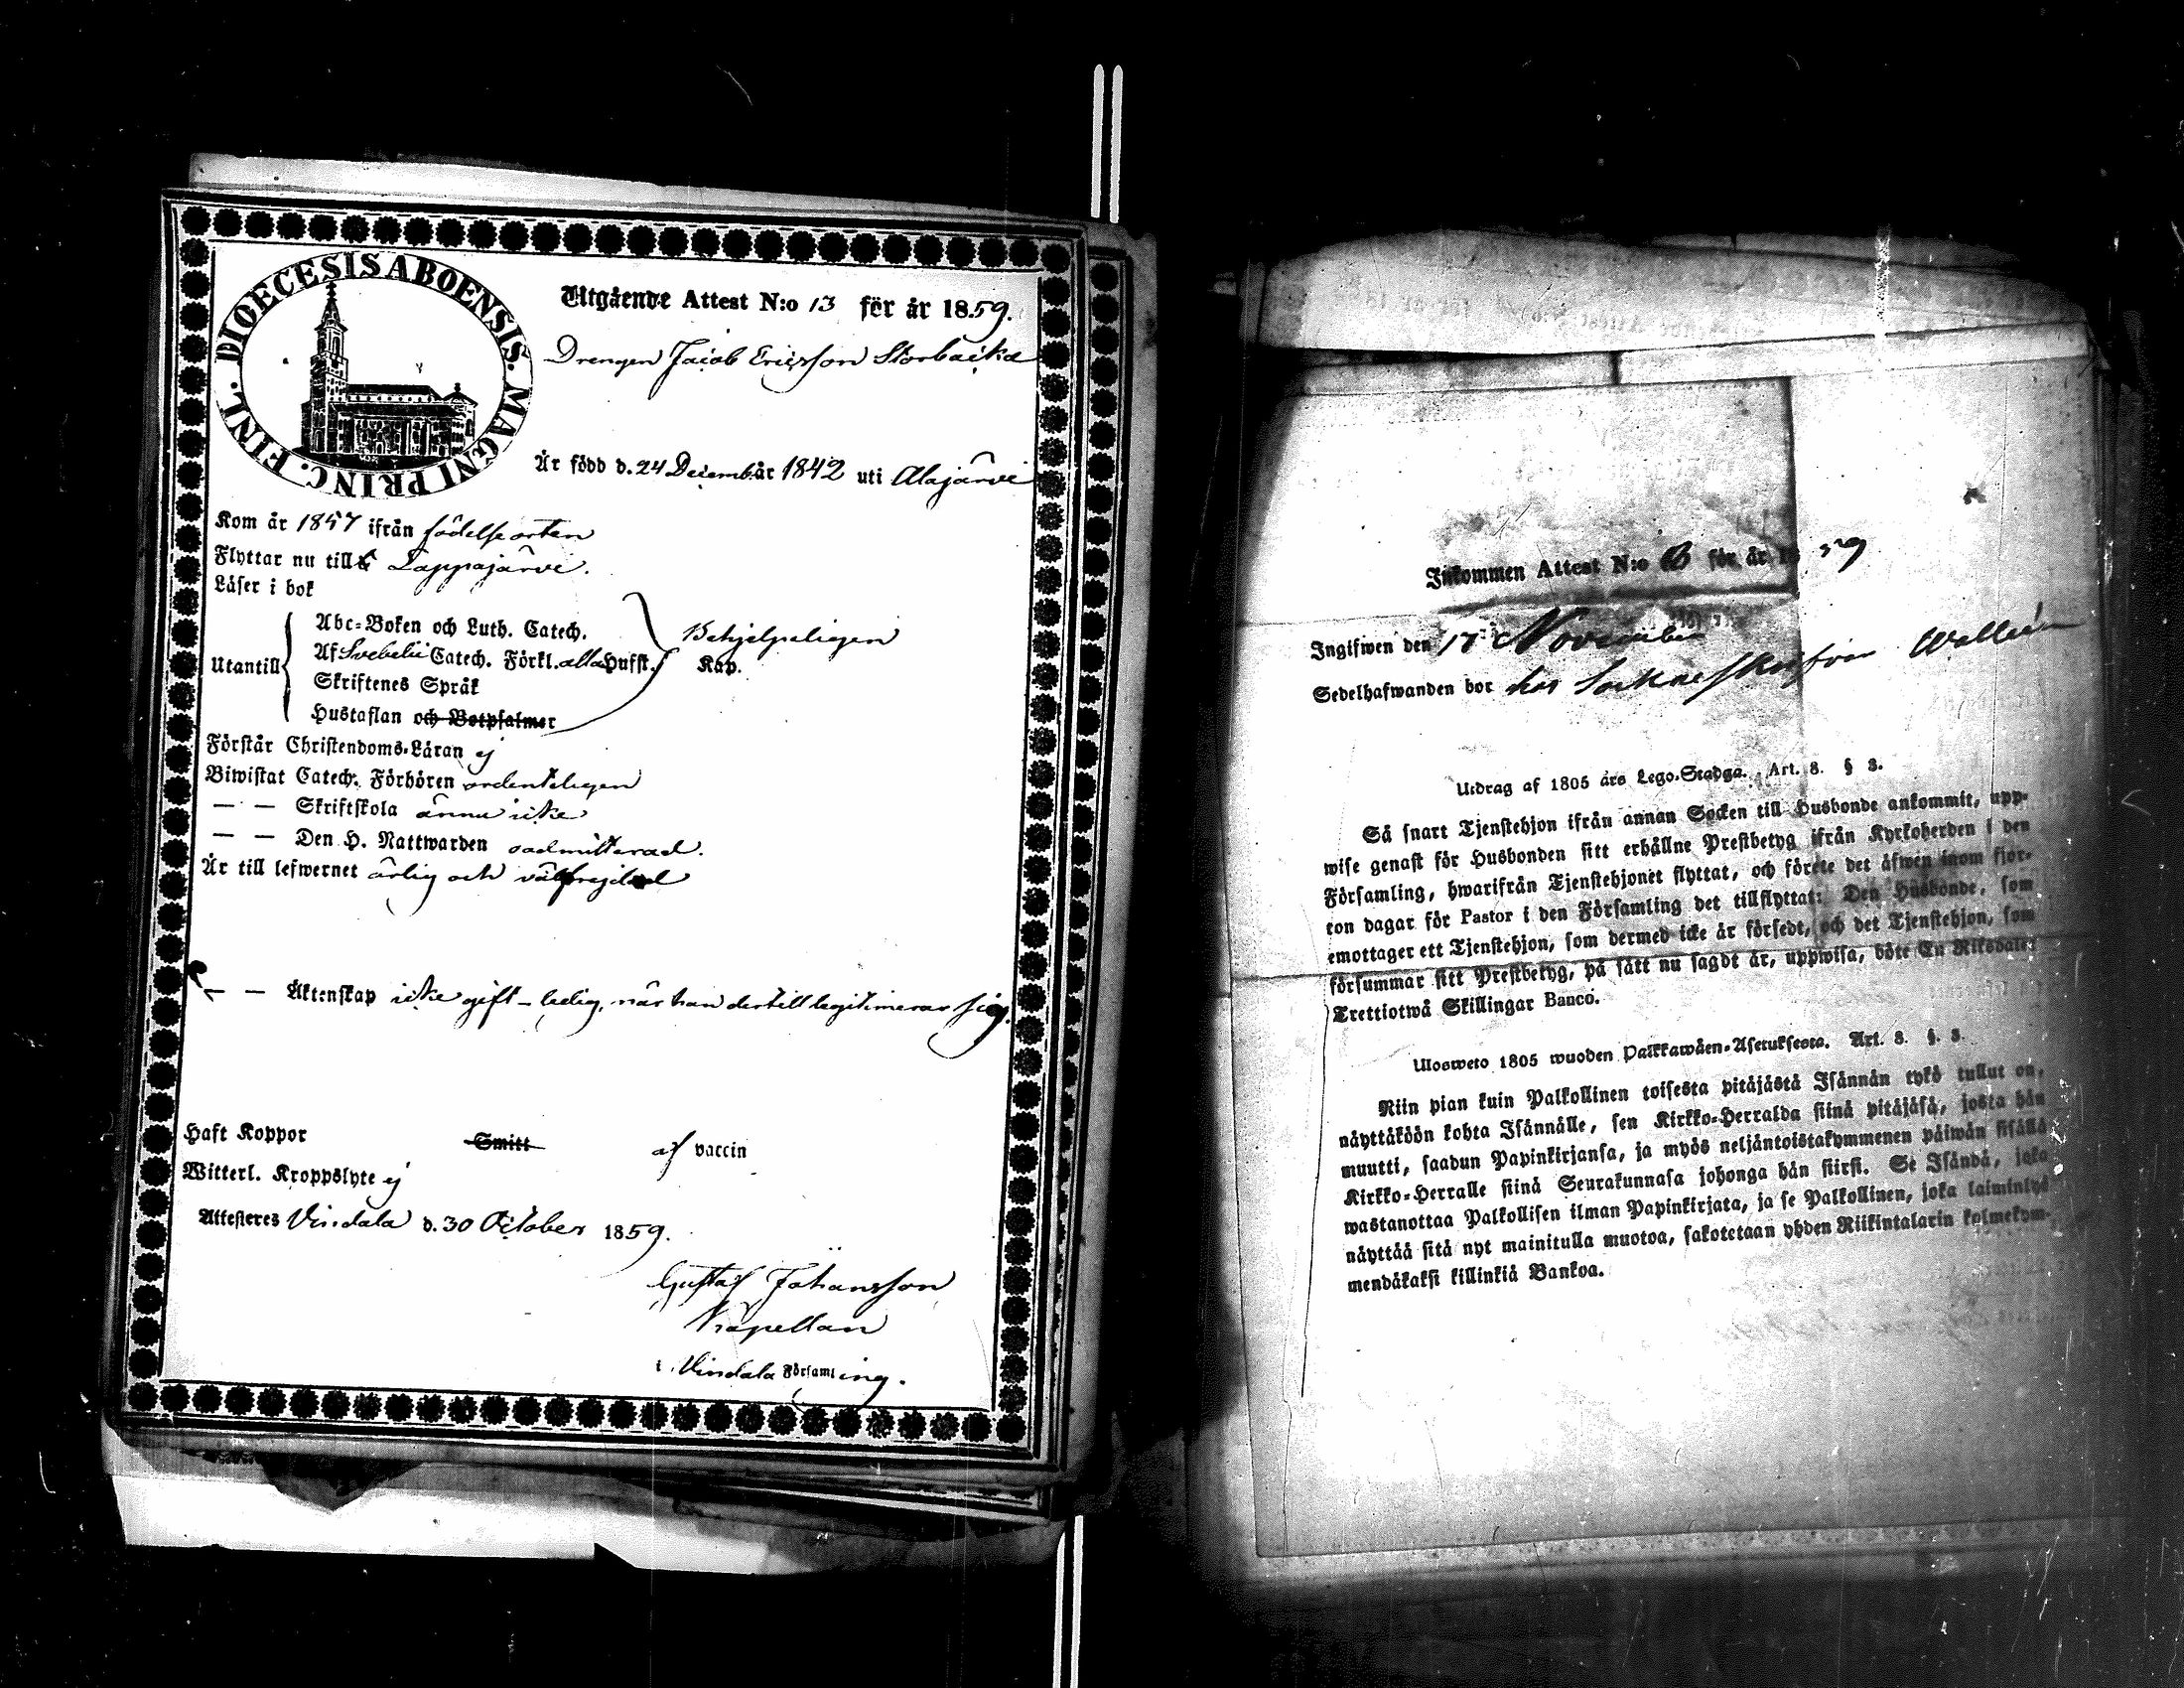 DIOECESIS ABOENSIS. MAGNI PRINC. FINL.
Utgående Attest N:o 13 för år 1859.
Drengen Jacob Ericsson Storbacka
Är född d. 24 Decemb. år 1842 uti Alajärvi
Kom år 1857 ifrån födelseorten
Flyttar nu till Lappajärvi.
Läser i bok
Abc-Boken och Luth. Catech.
Utantill Af Svebelii Catech. Förkl. alla Hufst. Kap.
Behjelpeligen
Skriftenes Språk
Hustaflan och Botpsalmer
Förstår Christendoms-Läran ej
Biwistat Catech. Förhören ordenteligen
— — Skriftskola ännu icke
— — Den H. Nattwarden oadmitterad.
Är till lefwernet ärlig och välfrejdad
— — Äktenskap icke gift - ledig, när han dertill legitimerar sig.
Haft Koppor Smitt af vaccin
Witterl. Kroppslyte ej
Attesteres Vindala d. 30 October 1859.
Gustaf Johansson
Kapellan
i Vindala Församling.
Inkommen Attest N:o för år 18 59
Ingifwen den 17 November
Sedelhafwanden bor hos Sockneskrifvar
Utdrag af 1805 års Lego-Stadga. Art. 8. § 3.
Så snart Tjenstehjon ifrån annan Socken till Husbonde ankommit, upp-
wise genast för Husbonden sitt erhållne Prestbetyg ifrån Kyrkoherden i den
Församling, hwarifrån Tjenstehjonet flyttat, och förete det äfwen inom fjor-
ton dagar för Pastor i den Församling det tillflyttat: Den Husbonde, som
emottager ett Tjenstehjon, som dermed icke är försedt, och det Tjenstehjon, som
försummar sitt Prestbetyg, på sätt nu sagdt är, uppwisa, böte En Riksdaler
Trettiotwå Skillingar Banco.
Ulosweto 1805 wuoden Palkkawäen-Asetuksesta. Art. 8. §. 3.
Niin pian kuin Palkollinen toisesta pitäjästä Isännän tykö tullut on,
näyttäköön kohta Isännälle, sen Kirkko-Herralda siinä pitäjäsä, josta hän
muutti, saadun Papinkirjansa, ja myös neljäntoistakymmenen päiwän sisällä
Kirkko-Herralle siinä Seurakunnasa johonga hän siirsi. Se Isändä, joka
wastanottaa Palkollisen ilman Papinkirjata, ja se Palkollinen, joka laiminlyö
näyttää sitä nyt mainitulla muotoa, sakotetaan yhden Riikintalarin kolmekym-
mendäkaksi killinkiä Bankoa.